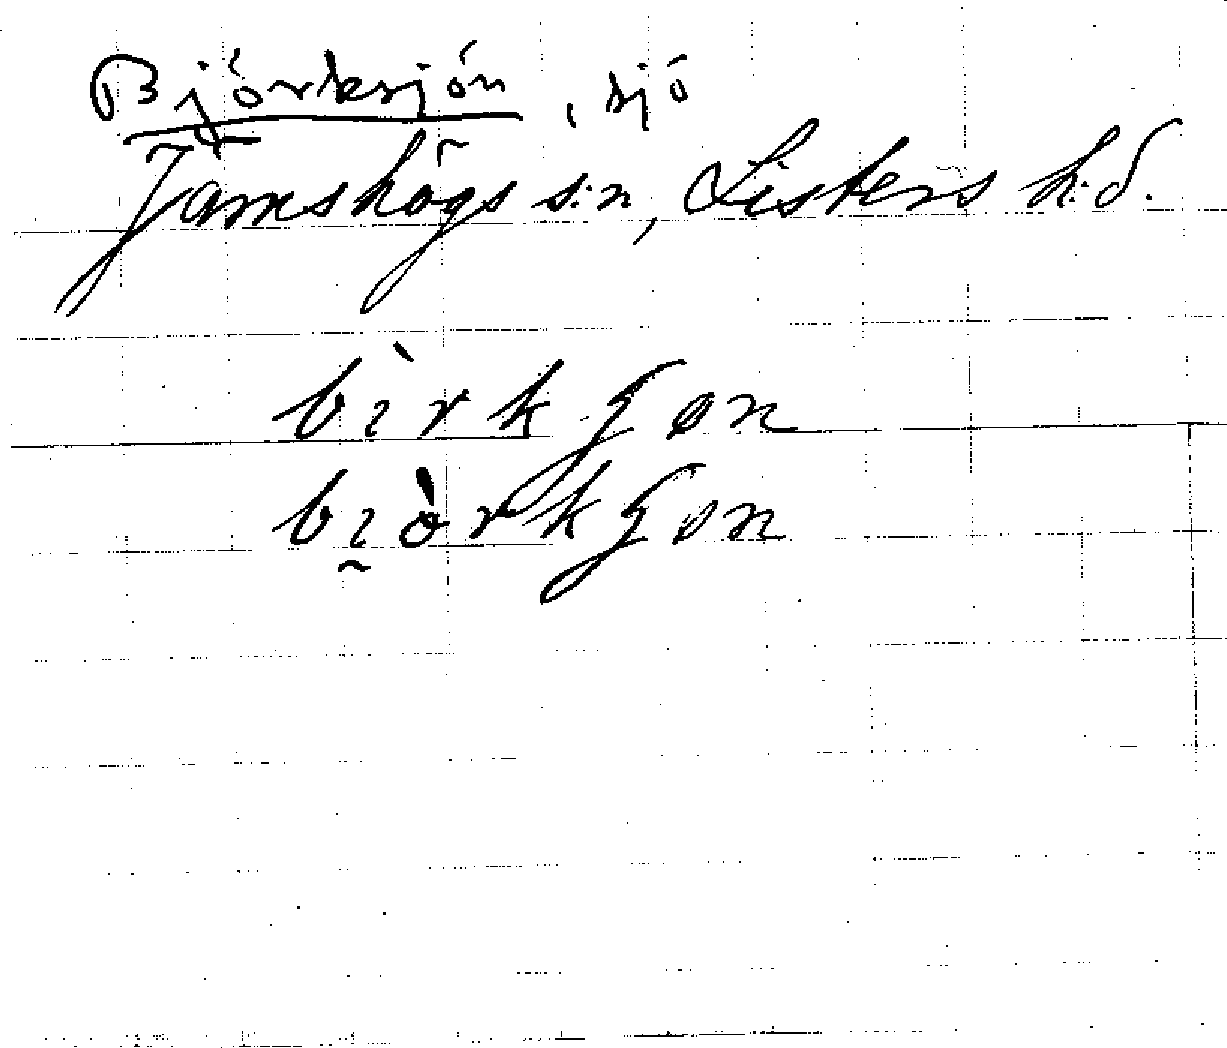 Björksjön, sjö
Jämshögs s:n, Listers h:d.
bìrkʃøn
bi̯òrkʃøn